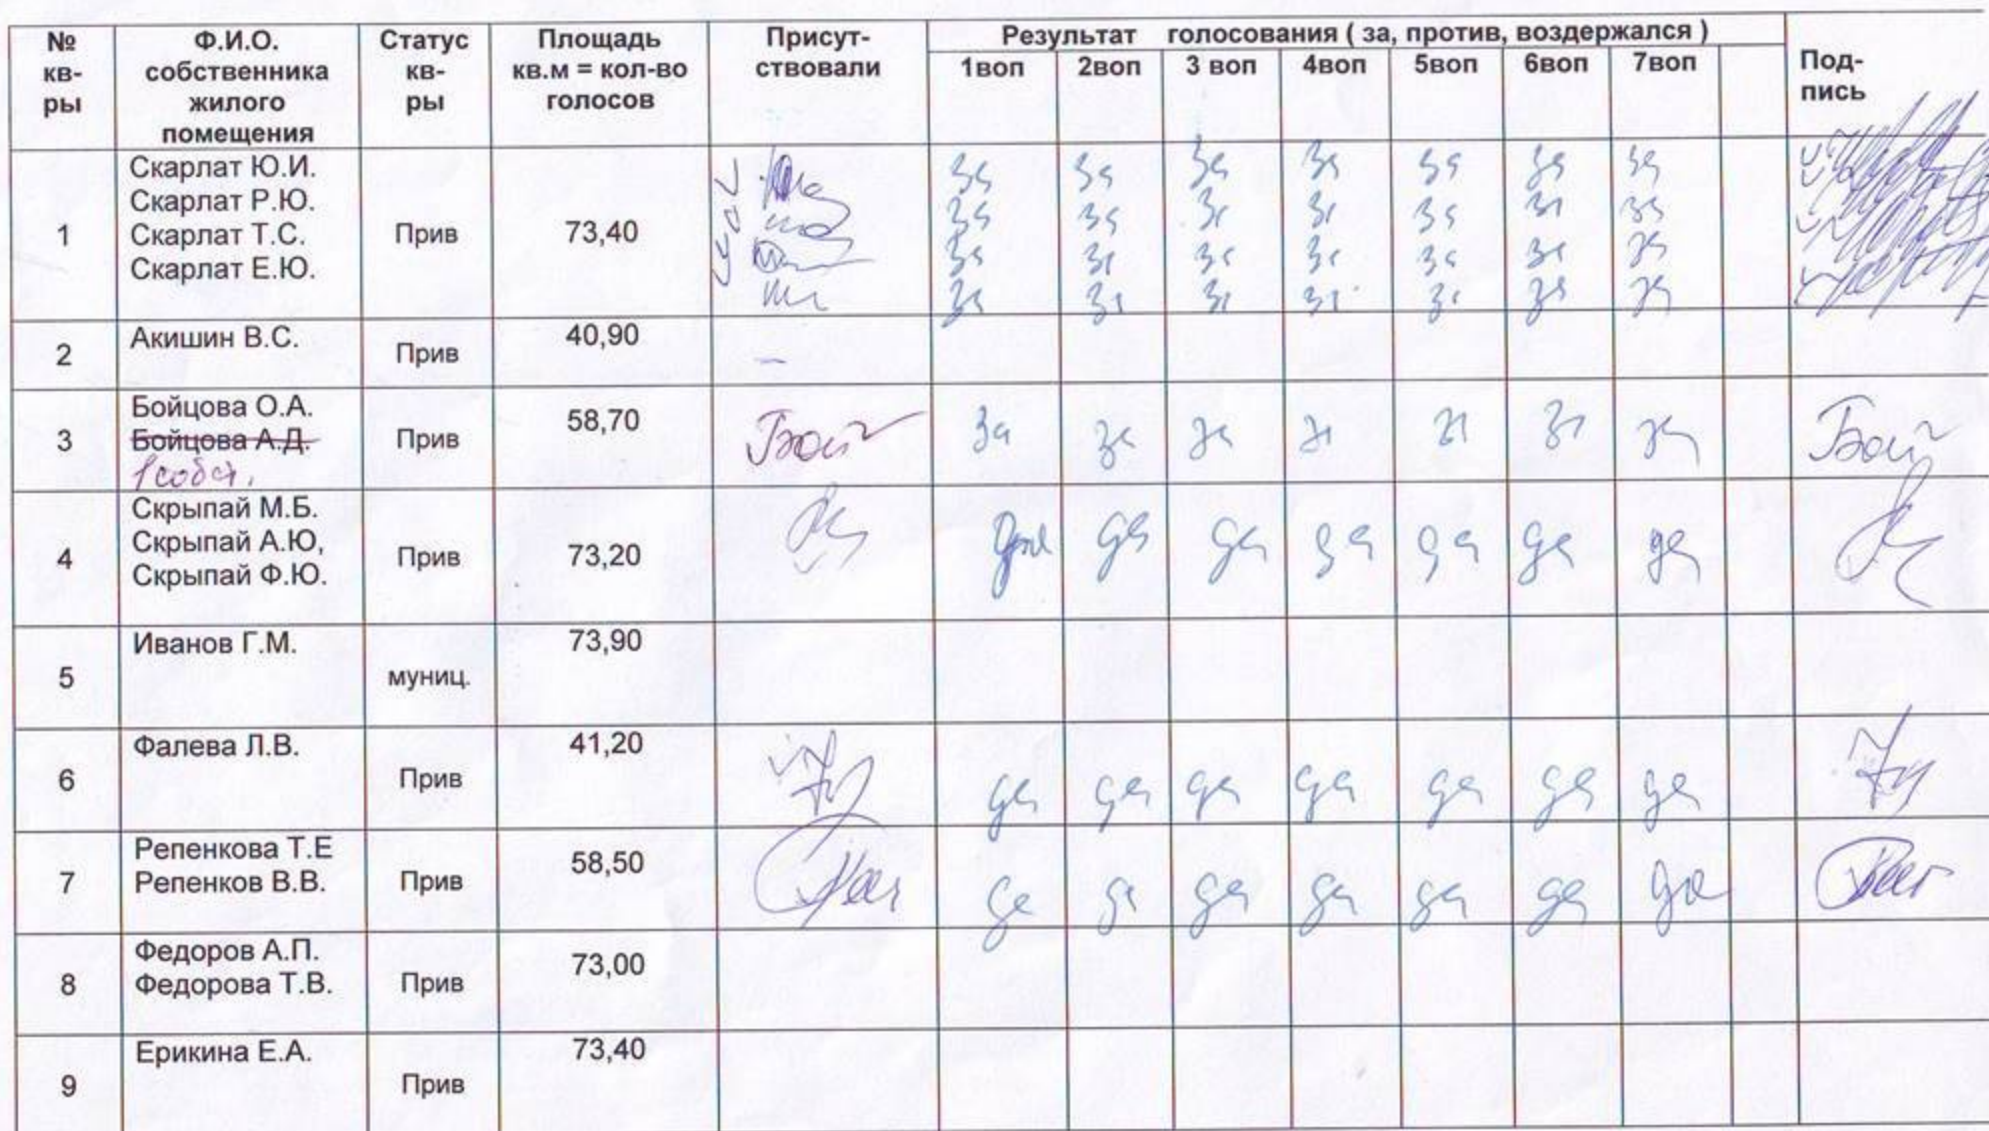 № кв-ры Ф.И.О. собственника жилого помещения Статус кв-ры Площадь кв.м = кол-во голосов Присут-ствовали Результат голосования ( за, против, воздержался ) Под-пись
1воп 2воп 3 воп 4воп 5воп 6воп 7воп
Скарлат Ю.И. за за за за за за за
Скарлат Р.Ю. за за за за за за за
1 Скарлат Т.С. Прив 73,40 за за за за за за за
Скарлат Е.Ю. за за за за за за за
2 Акишин В.С. Прив 40,90 –
Бойцова О.А.
3 Бойцова А.Д. Прив 58,70 Бой за за за за за за за Бой
1 собст.
Скрыпай М.Б.
Скрыпай А.Ю,
4 Скрыпай Ф.Ю. Прив 73,20 да да да да да да да
5 Иванов Г.М. муниц. 73,90
6 Фалева Л.В. Прив 41,20 да да да да да да да
Репенкова Т.Е
7 Репенков В.В. Прив 58,50 да да да да да да да
Федоров А.П.
8 Федорова Т.В. Прив 73,00
9 Ерикина Е.А. Прив 73,40